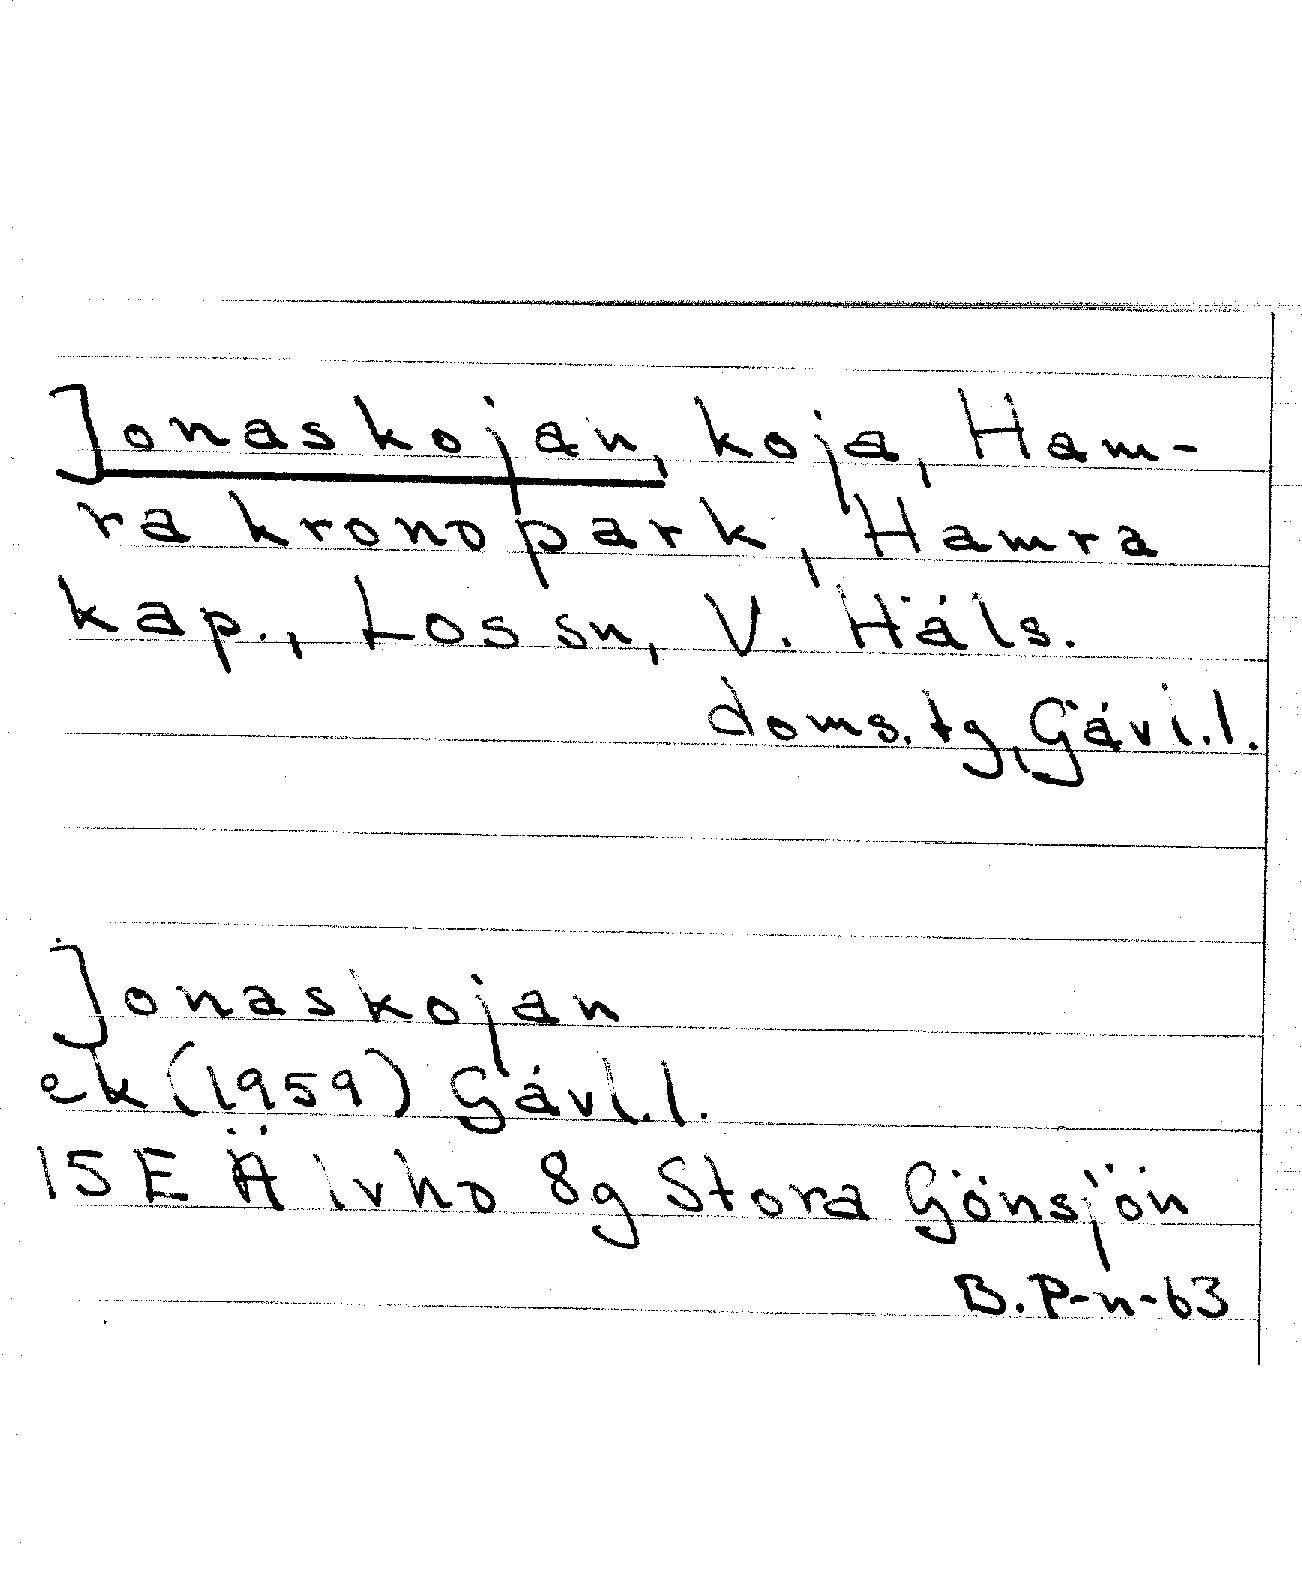 Jonaskojan, koja, Ham-
ra kronopark, Hamra
kap., Los sn, V. Häls.
doms. tg, Gävl. l.
Jonaskojan
ek (1959) Gävl. l.
15E Älvho 8g Stora Gönsjön
B. P-n-63